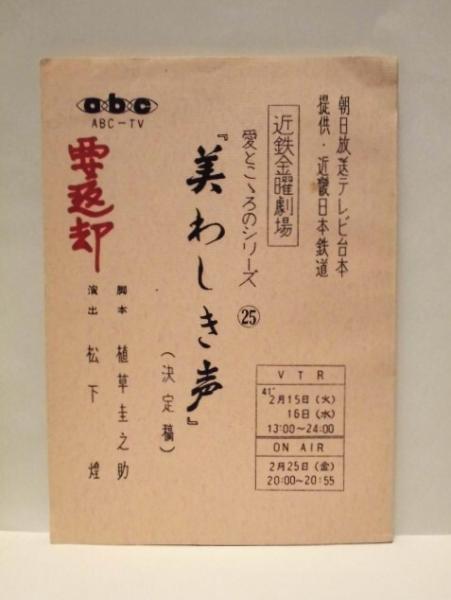 朝日放送テレビ台本
提供・近畿日本鉄道
近鉄金曜劇場
愛とこゝろのシリーズ ㉕
『美わしき声』
(決定稿)
脚本 植草圭之助
演出 松下煌
abc
ABC-TV
要返却
VTR
41'
2月15日(火)
16日(水)
13:00~24:00
ON AIR
2月25日(金)
20:00~20:55